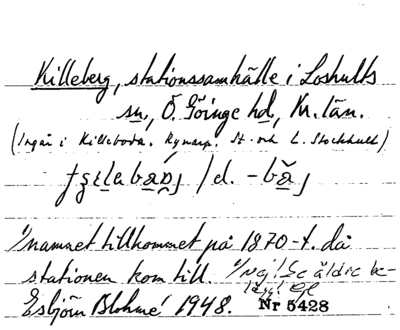 Killeberg, stationssamhälle i Loshults
sn, Ö. Göinge hd, Kr. län.
(Ingår i Killeboda. Kynarp. St. och L. Stockhult)
/d. -bă
1/ namnet tillkommet på 1870-t. då
stationen kom till. 2/ Nej! Se äldre be-
lägg!
Esbjörn Blohmé 1948. Nr 5428